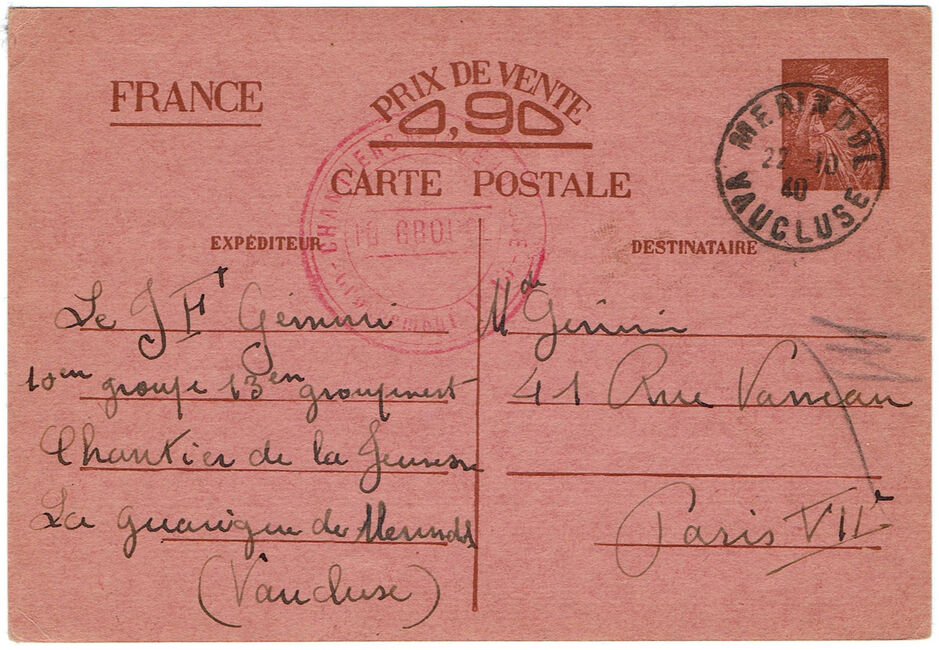 FRANCE
PRIX DE VENTE
0,90
CARTE POSTALE
MERINDOL
22 -10
40
VAUCLUSE
CHANTIERS DE LA JEUNESSE
EXPÉDITEUR
Le J Ft Gémini
10em groupe 13em groupement
Chantier de la Jeunesse
La de Merindol
(Vaucluse)
DESTINATAIRE
Mde Gémini
41 Rue Vanneau
Paris VIIe